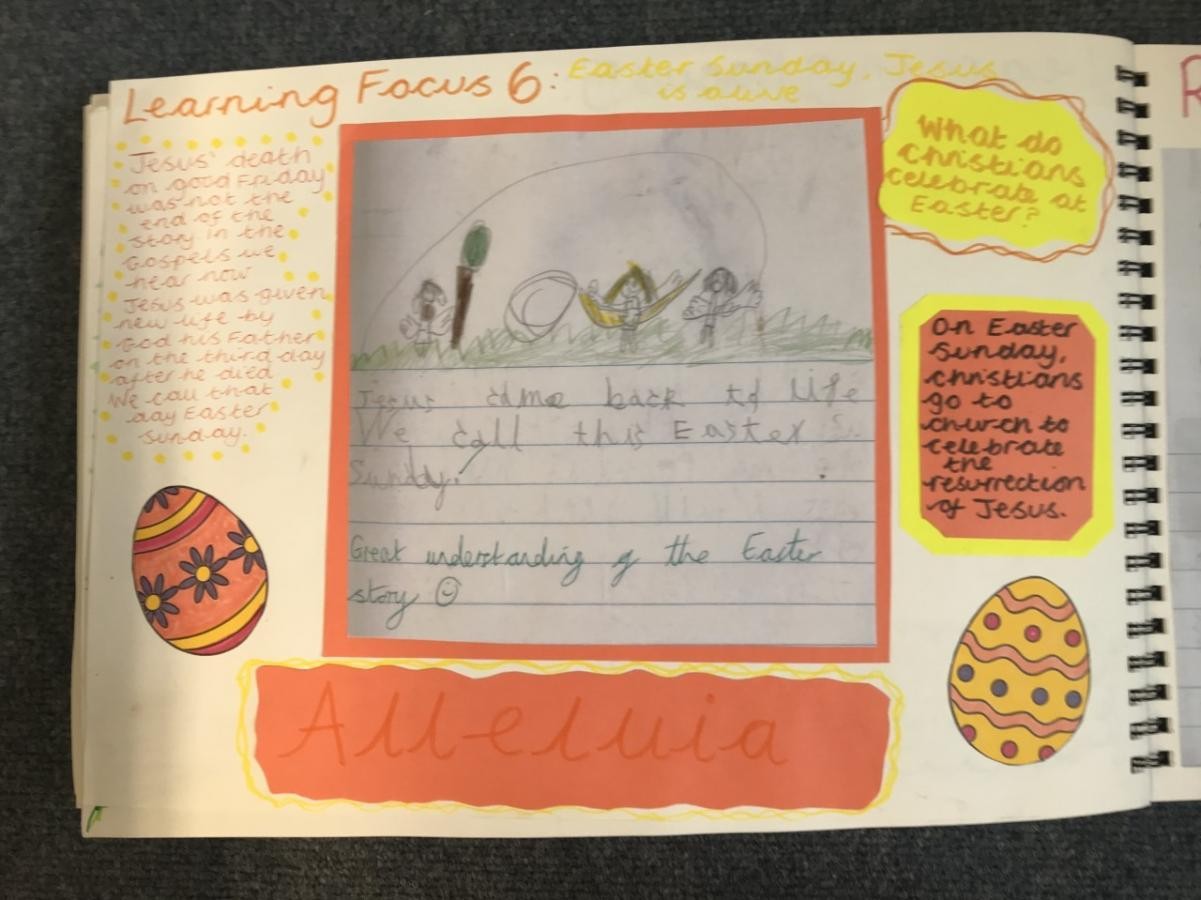 Learning Focus 6: Easter Sunday, Jesus
is alive
Jesus' death
on good Friday
was not the
end of the
story in the
Gospels we
hear how
Jesus was given
new life by
God his Father
on the third day
after he died
We call that
day Easter
Sunday.
Jesus came back to life
We call this Easter S.
Sunday.
Great understanding of the Easter
story
What do
christians
celebrate at
Easter?
On Easter
Sunday,
christians
go to
church to
celebrate
the
resurrection
of Jesus.
Alleluia
R